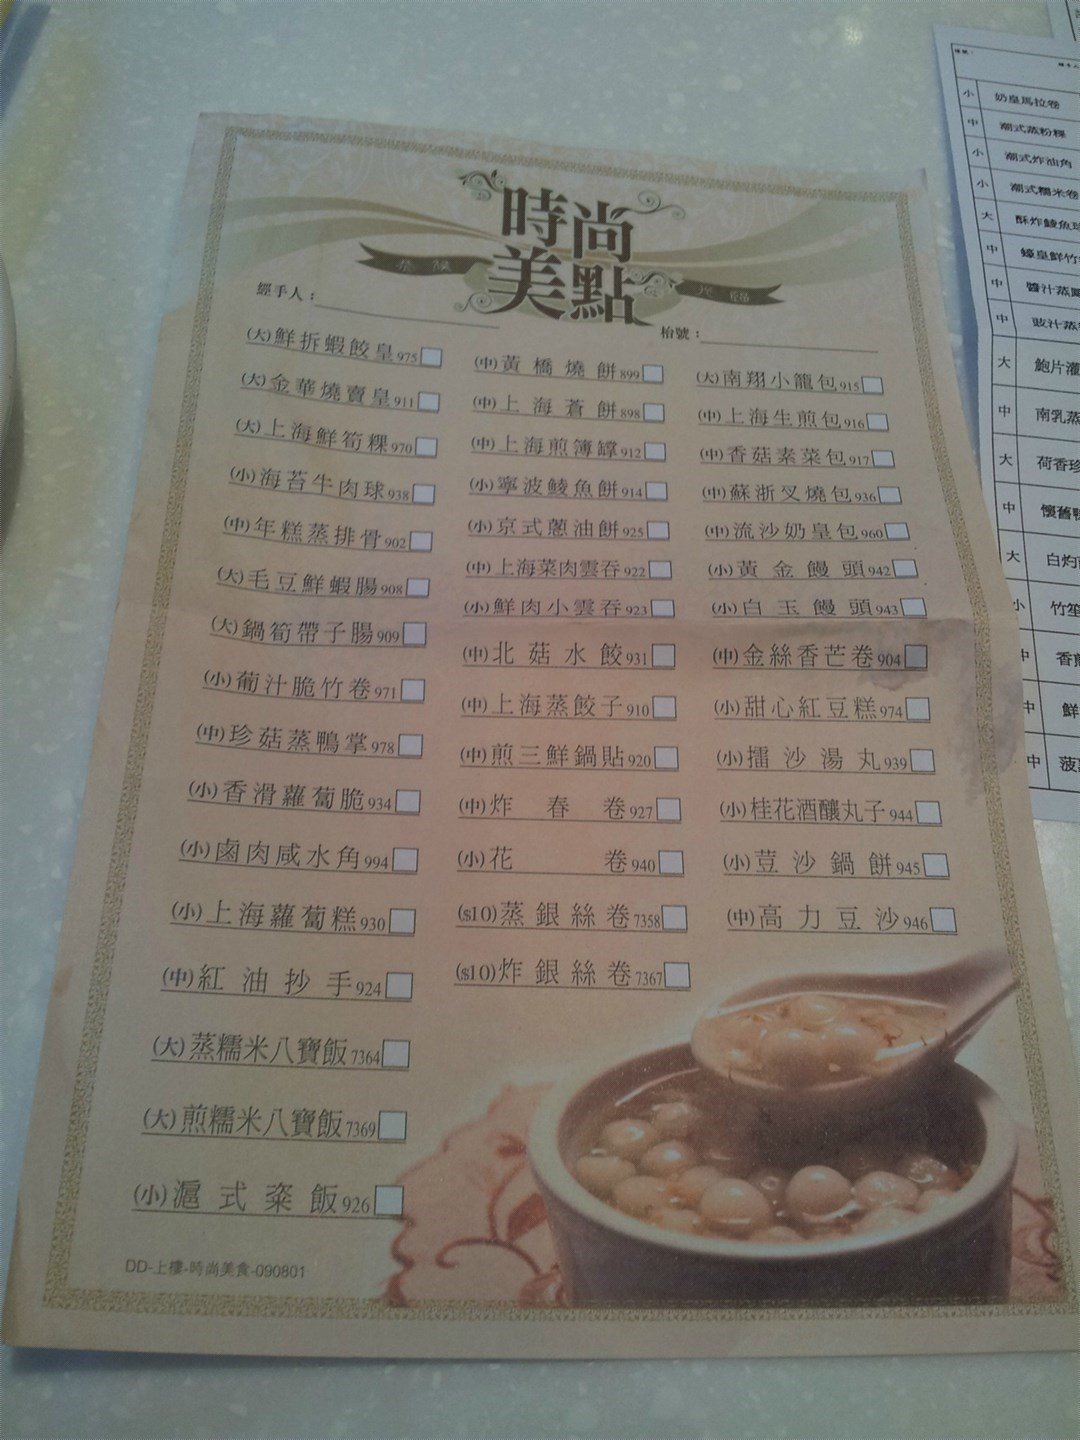 時尚
美點
經手人：
枱號：
(大)鮮拆蝦餃皇975
(大)金華燒賣皇911
(大)上海鮮筍粿970
(小)海苔牛肉球938
(中)年糕蒸排骨902
(大)毛豆鮮蝦腸908
(大)鍋筍帶子腸909
(小)葡汁脆竹卷971
(中)珍菇蒸鴨掌978
(小)香滑蘿蔔脆934
(小)鹵肉咸水角994
(小)上海蘿蔔糕930
(中)紅油抄手924
(大)蒸糯米八寶飯7364
(大)煎糯米八寶飯7369
(小)滬式粢飯926
(中)黃橋燒餅899
(中)上海蒼餅898
(中)上海煎簿罉912
(小)寧波鯪魚餅914
(小)京式蔥油餅925
(中)上海菜肉雲吞922
(小)鮮肉小雲吞923
(中)北菇水餃931
(中)上海蒸餃子910
(中)煎三鮮鍋貼920
(中)炸春卷927
(小)花卷940
($10)蒸銀絲卷7358
($10)炸銀絲卷7367
(大)南翔小籠包915
(中)上海生煎包916
(中)香菇素菜包917
(中)蘇浙叉燒包936
(中)流沙奶皇包960
(小)黃金饅頭942
(小)白玉饅頭943
(中)金絲香芒卷904
(小)甜心紅豆糕974
(小)擂沙湯丸939
(小)桂花酒釀丸子944
(小)荳沙鍋餅945
(中)高力豆沙946
DD-上樓-時尚美食-090801
小 奶皇馬拉卷
中 潮式蒸粉粿
小 潮式炸油角
小 潮式糯米卷
大 酥炸鯪魚球
中 蠔皇鮮竹
中 醬汁蒸鳳
中 豉汁蒸
大 鮑片灌
中 南乳蒸
大 荷香珍
中 懷舊鴨
大 白灼
小 竹笙
中 香煎
中 鮮
中 菠